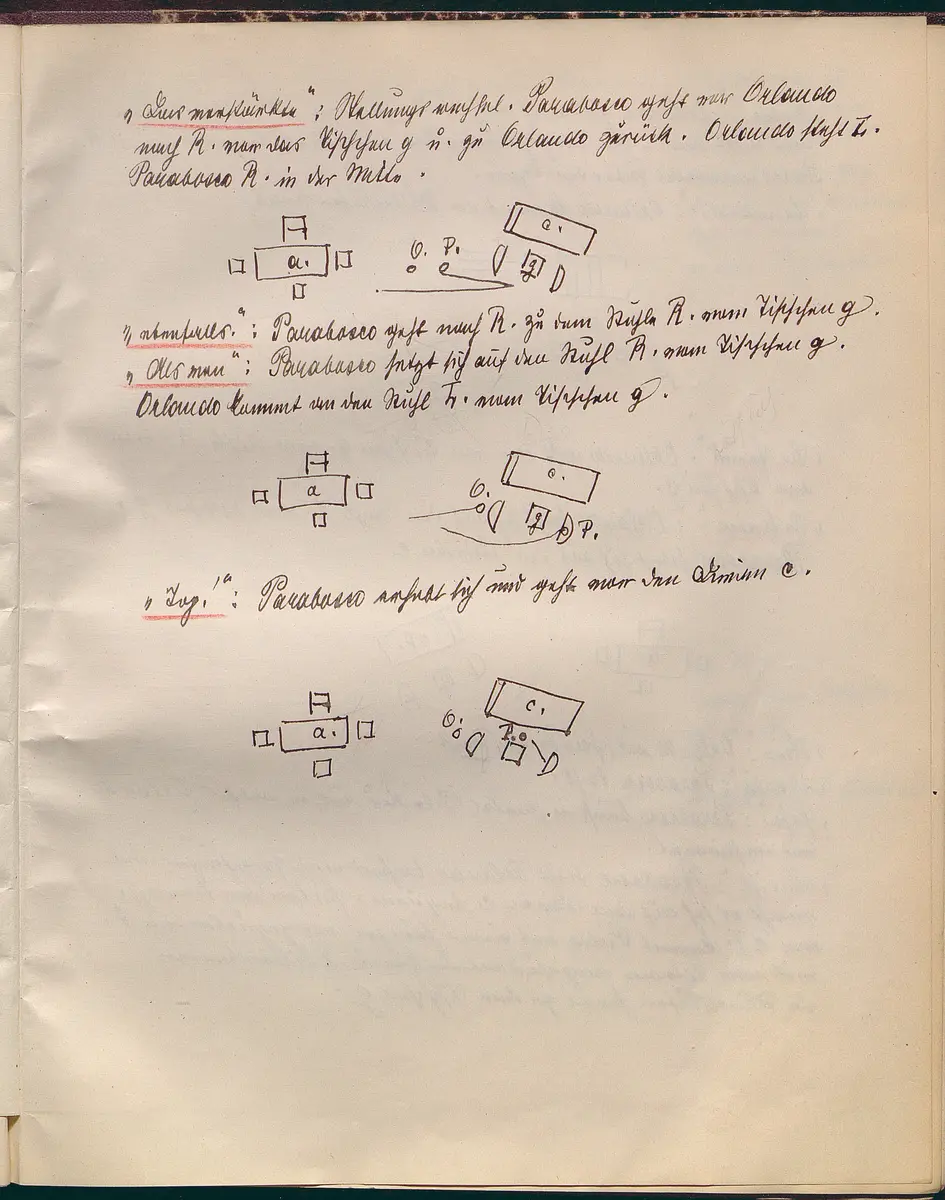 „Das verstärkte“: Stellungswechsel. Parabosco geht vor Orlando
nach R. vor das Tischchen g u. zu Orlando zurück. Orlando steht L.
Parabosco R. in der Mitte.
c.
O. P.
a.
g
„ebenfalls.“: Parabosco geht nach R. zu dem Stuhle R. vom Tischchen g.
„Als man“: Parabosco setzt sich auf den Stuhl R. vom Tischchen g.
Orlando kommt an den Stuhl L. vom Tischchen g.
c.
a
O.
g
P.
„Top!“: Parabosco erhebt sich und geht vor den Divan c.
c.
O.
a.
P.